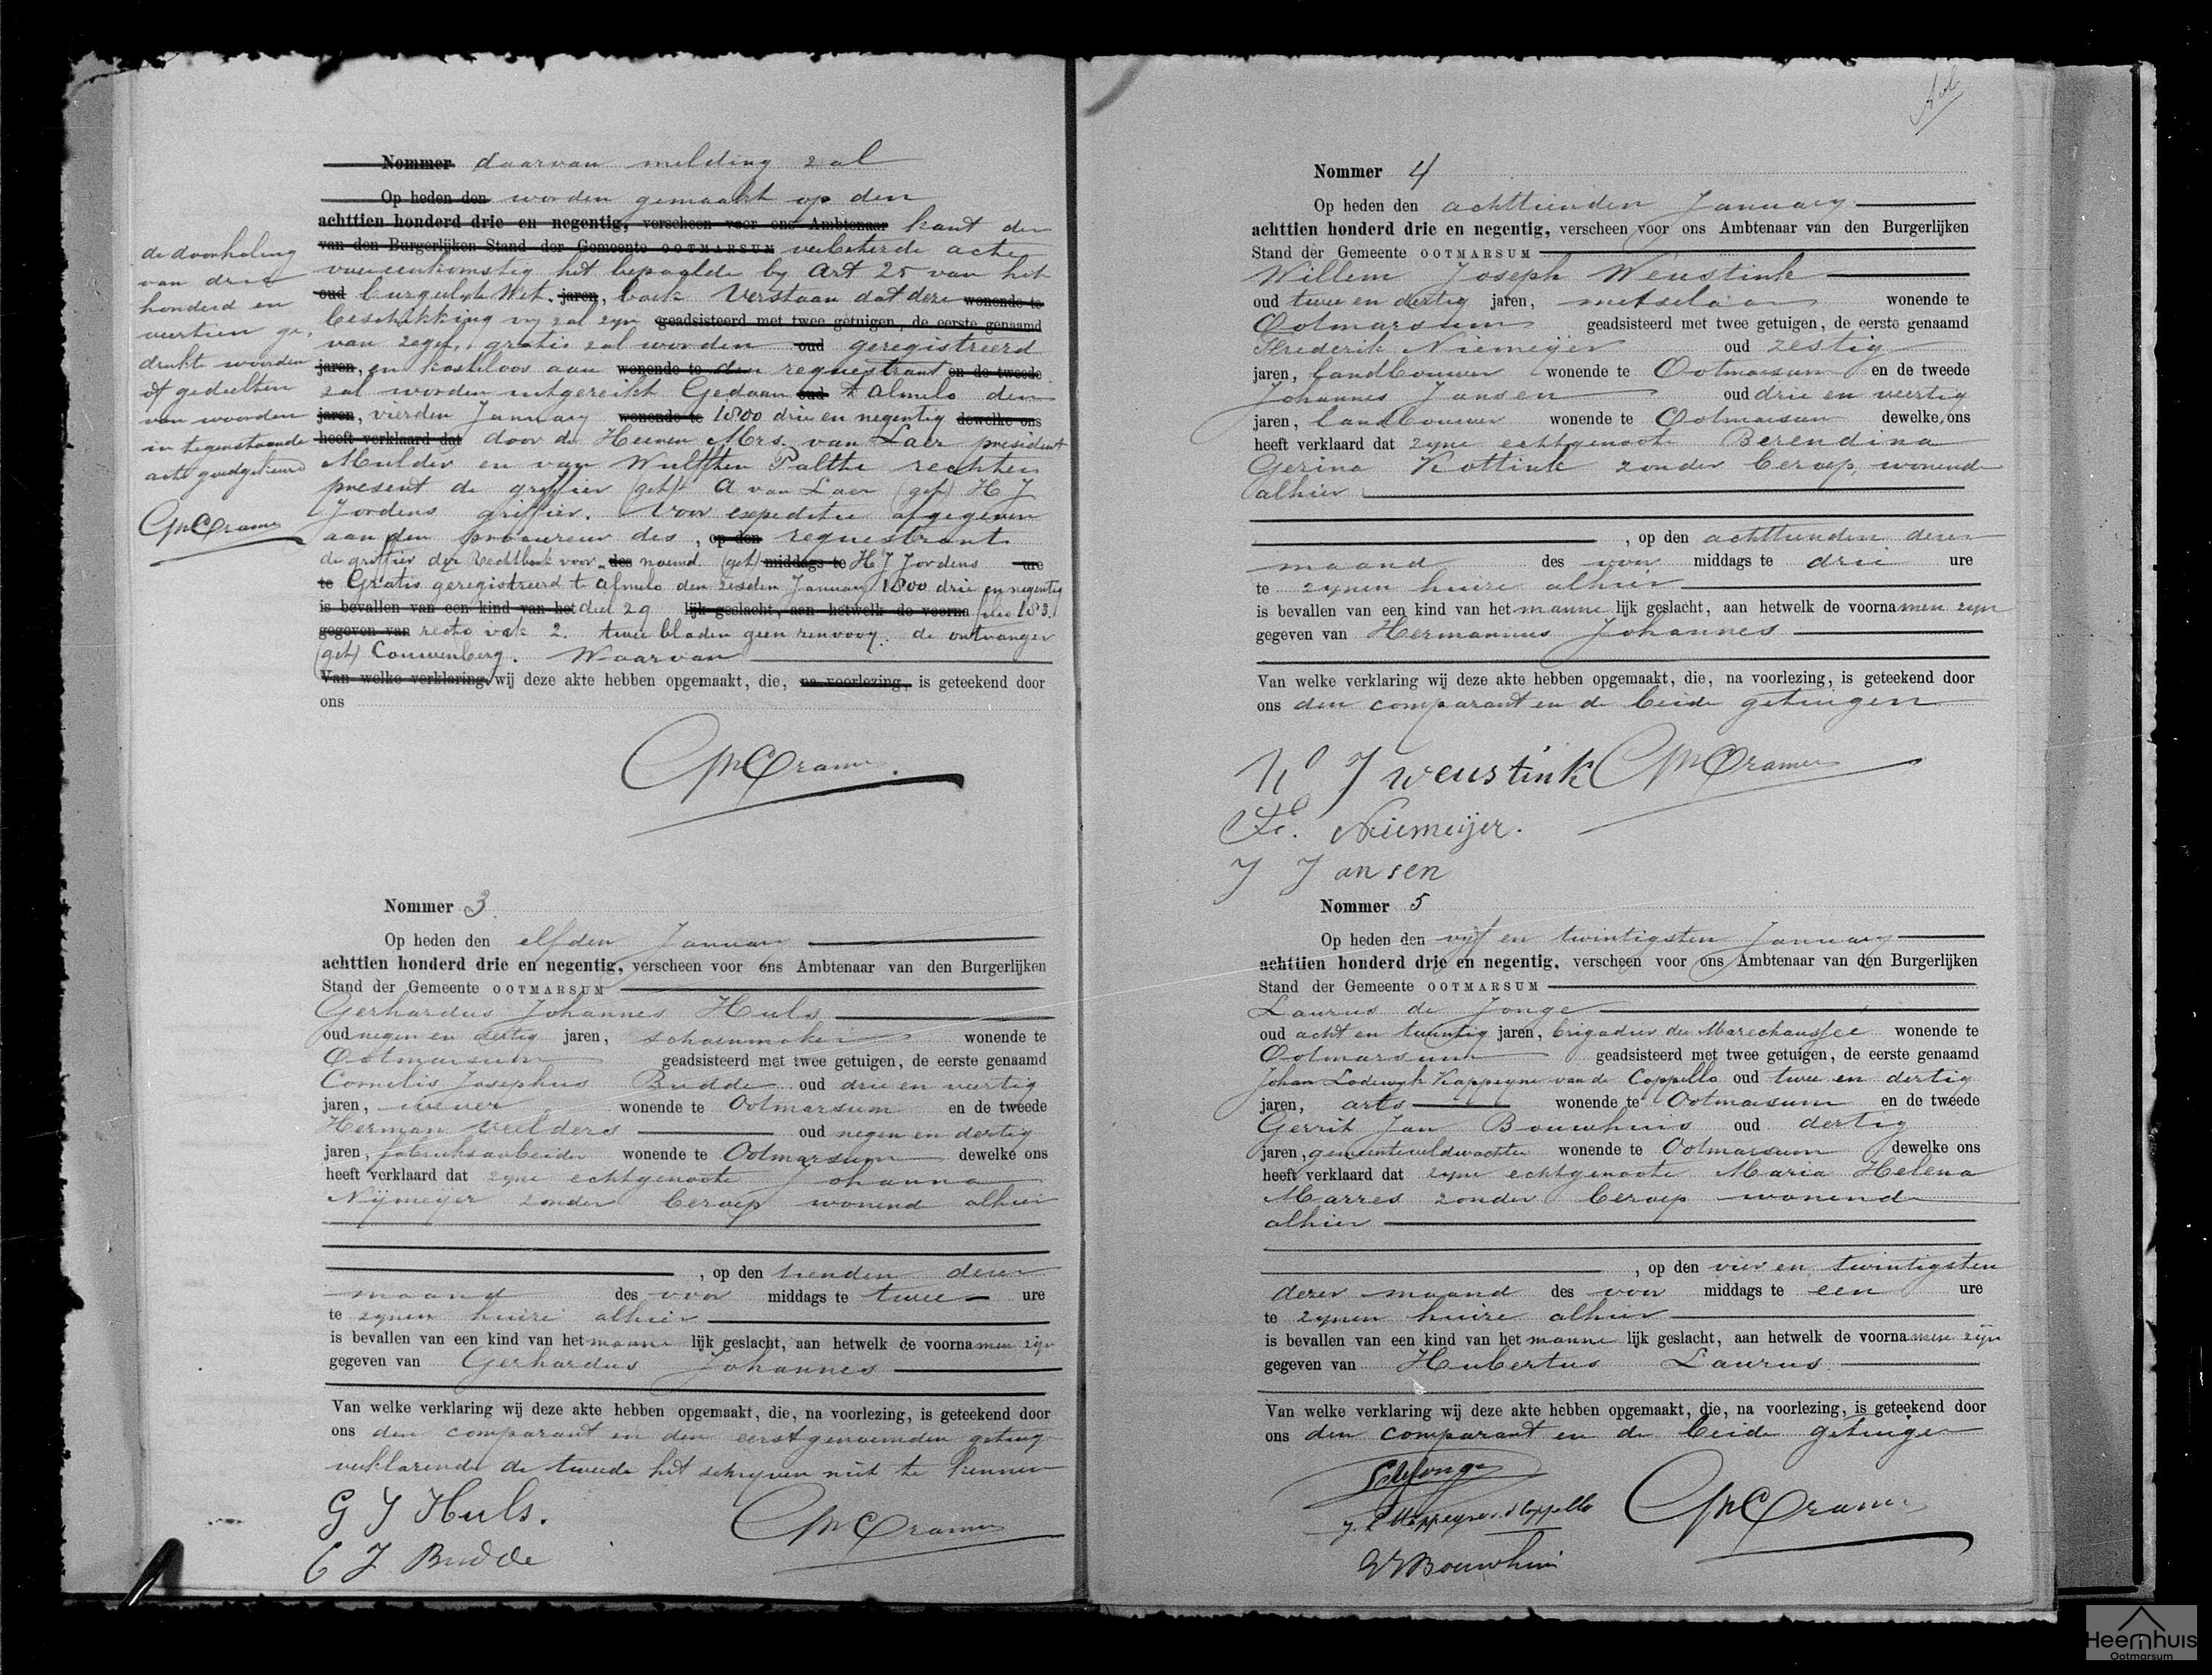 Nommer daarvan melding zal
Op heden den worden gemaakt op den
achttien honderd drie en negentig, verscheen voor ons Ambtenaar kant der
van den Burgerlijken Stand der Gemeente OOTMARSUM verbeterde acte
overeenkomstig het bepaalde by Art 25 van het
oud burgerlyk Wet jaren, boek Verstaan dat deze wonende te
beschikking vry zal zyn geadsisteerd met twee getuigen, de eerste genaamd
van zegel, gratis zal worden oud geregistreerd
jaren, en kosteloos aan wonende te den requestrant en de tweede
zal worden uitgereikt Gedaan oud te Almelo den
jaren, vierden January wonende te 1800 drie en negentig dewelke ons
heeft verklaard dat door de Heeren Mrs. van Laer president
Mulder en van Wulfften Palthe rechters
present de griffier (get) A van Laer (get) H J
Jordens griffier. Voor expeditie afgegeven
aan den procureur des, op den requestrant
de griffier der Rechtbank voor des noemd (get) middags te H J Jordens ure
te Gratis geregistreerd te Almelo den zesden January 1800 drie en negentig
is bevallen van een kind van het deel 29 lijk geslacht, aan hetwelk de voorna folio 183
gegeven van recto vak 2. twee bladen geen renvooy. de ontvanger
(get) Couwenberg. Waarvan
Van welke verklaring wij deze akte hebben opgemaakt, die, na voorlezing, is geteekend door
ons
de doorhaling
van drie
honderd en
veertien ge,
drukte woorden
of gedeelten
van woorden
in tegenstaande
acte goedgekeurd
GMCramer
GMCramer
Nommer 3
Op heden den elfden January
achttien honderd drie en negentig, verscheen voor ons Ambtenaar van den Burgerlijken
Stand der Gemeente OOTMARSUM
Gerhardus Johannes Huls
oud negen en dertig jaren, schoenmaker wonende te
Ootmarsum geadsisteerd met twee getuigen, de eerste genaamd
Cornelis Josephus Budde oud drie en veertig
jaren, wever wonende te Ootmarsum en de tweede
Herman Veelders oud negen en dertig
jaren, fabrieksarbeider wonende te Ootmarsum dewelke ons
heeft verklaard dat zyne echtgenoote Johanna
Nijmeijer zonder beroep wonende alhier
, op den tienden dezer
maand des voor middags te twee ure
te zynen huize alhier
is bevallen van een kind van het manne lijk geslacht, aan hetwelk de voornamen zijn
gegeven van Gerhardus Johannes
Van welke verklaring wij deze akte hebben opgemaakt, die, na voorlezing, is geteekend door
ons den comparant en den eerstgenoemden getuig
verklarende de tweede het schryven niet te kennen
G J Huls.
C J Budde
GMCramer
Nommer 4
Op heden den achttienden January
achttien honderd drie en negentig, verscheen voor ons Ambtenaar van den Burgerlijken
Stand der Gemeente OOTMARSUM
Willem Joseph Weustink
oud twee en dertig jaren, metselaar wonende te
Ootmarsum geadsisteerd met twee getuigen, de eerste genaamd
Frederik Niemeijer oud zestig
jaren, landbouwer wonende te Ootmarsum en de tweede
Johannes Jansen oud drie en veertig
jaren, landbouwer wonende te Ootmarsum dewelke ons
heeft verklaard dat zyne echtgenoote Berendina
Gerina Kottink zonder beroep, wonende
alhier
, op den achttienden dezer
maand des voor middags te drie ure
te zynen huize alhier
is bevallen van een kind van het manne lijk geslacht, aan hetwelk de voornamen zyn
gegeven van Hermannus Johannes
Van welke verklaring wij deze akte hebben opgemaakt, die, na voorlezing, is geteekend door
ons den comparant en de beide getuigen
W J Weustink GMCramer
Fr. Niemeijer.
J Jansen
Nommer 5
Op heden den vijf en twintigsten January
achttien honderd drie en negentig, verscheen voor ons Ambtenaar van den Burgerlijken
Stand der Gemeente OOTMARSUM
Laurus de Jonge
oud acht en twintig jaren, brigadier der Marechaussee wonende te
Ootmarsum geadsisteerd met twee getuigen, de eerste genaamd
Johan Lodewyk Kappeyne van de Coppello oud twee en dertig
jaren, arts wonende te Ootmarsum en de tweede
Gerrit Jan Bouwhuis oud dertig
jaren, gemeenteveldwachter wonende te Ootmarsum dewelke ons
heeft verklaard dat zyne echtgenoote Maria Helena
Marres zonder beroep wonende
alhier
, op den vier en twintigsten
dezer maand des voor middags te een ure
te zynen huize alhier
is bevallen van een kind van het manne lijk geslacht, aan hetwelk de voornamen zijn
gegeven van Hubertus Laurus.
Van welke verklaring wij deze akte hebben opgemaakt, die, na voorlezing, is geteekend door
ons den comparant en de beide getuigen
L de Jonge
J. L Kappeyne v. d Coppello
GMCramer
GJ Bouwhuis
Heemhuis
Ootmarsum